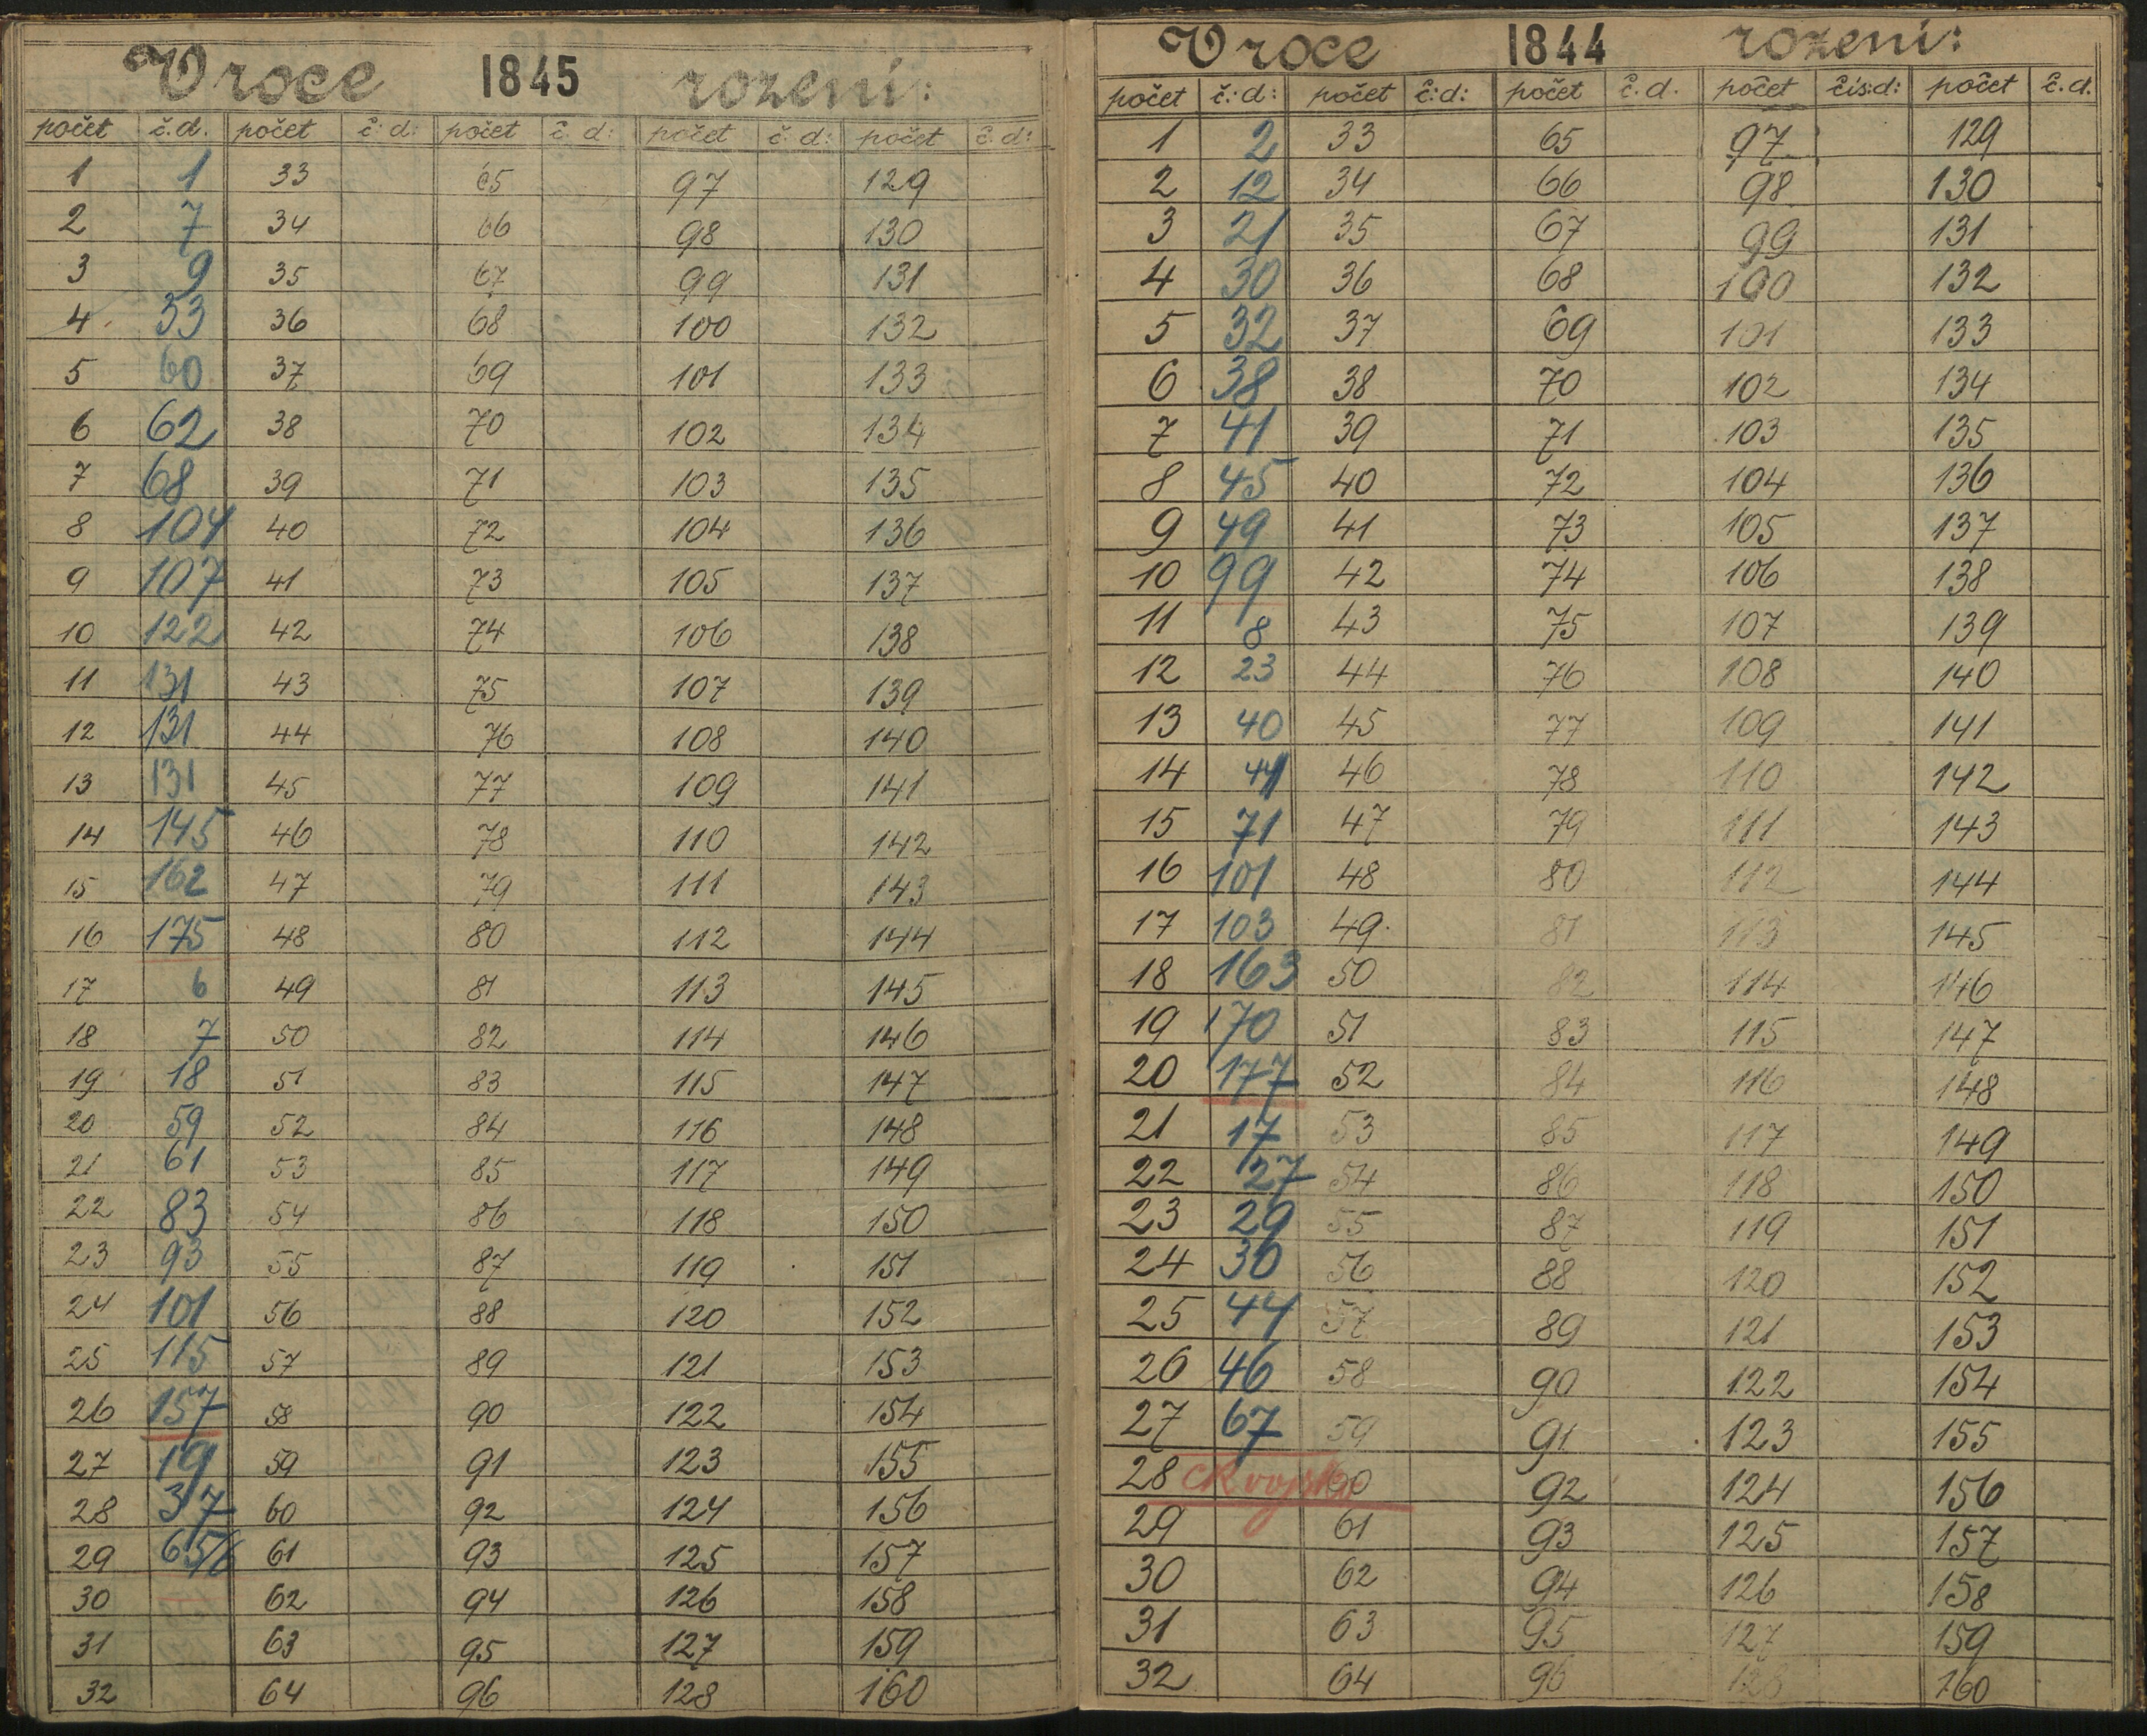 V roce 1845 rození:
počet č.d. počet č:d: počet č.d: počet č.d: počet č.d:
1 1 33 65 97 129
2 7 34 66 98 130
3 9 35 67 99 131
4 33 36 68 100 132
5 60 37 69 101 133
6 62 38 70 102 134
7 68 39 71 103 135
8 104 40 72 104 136
9 107 41 73 105 137
10 122 42 74 106 138
11 131 43 75 107 139
12 131 44 76 108 140
13 131 45 77 109 141
14 145 46 78 110 142
15 162 47 79 111 143
16 175 48 80 112 144
17 6 49 81 113 145
18 7 50 82 114 146
19 18 51 83 115 147
20 59 52 84 116 148
21 61 53 85 117 149
22 83 54 86 118 150
23 93 55 87 119 151
24 101 56 88 120 152
25 115 57 89 121 153
26 157 58 90 122 154
27 19 59 91 123 155
28 37 60 92 124 156
29 65/6 61 93 125 157
30 62 94 126 158
31 63 95 127 159
32 64 96 128 160
V roce 1844 rození:
počet č.:d: počet č:d: počet č.d. počet čís:d: počet č.d.
1 2 33 65 97 129
2 12 34 66 98 130
3 21 35 67 99 131
4 30 36 68 100 132
5 32 37 69 101 133
6 38 38 70 102 134
7 41 39 71 103 135
8 45 40 72 104 136
9 49 41 73 105 137
10 99 42 74 106 138
11 8 43 75 107 139
12 23 44 76 108 140
13 40 45 77 109 141
14 46 78 110 142
15 71 47 79 111 143
16 101 48 80 112 144
17 103 49 81 113 145
18 163 50 82 114 146
19 170 51 83 115 147
20 177 52 84 116 148
21 17 53 85 117 149
22 27 54 86 118 150
23 29 55 87 119 151
24 30 56 88 120 152
25 44 57 89 121 153
26 46 58 90 122 154
27 67 59 91 123 155
28 60 92 124 156
29 61 93 125 157
30 62 94 126 158
31 63 95 127 159
32 64 96 128 160